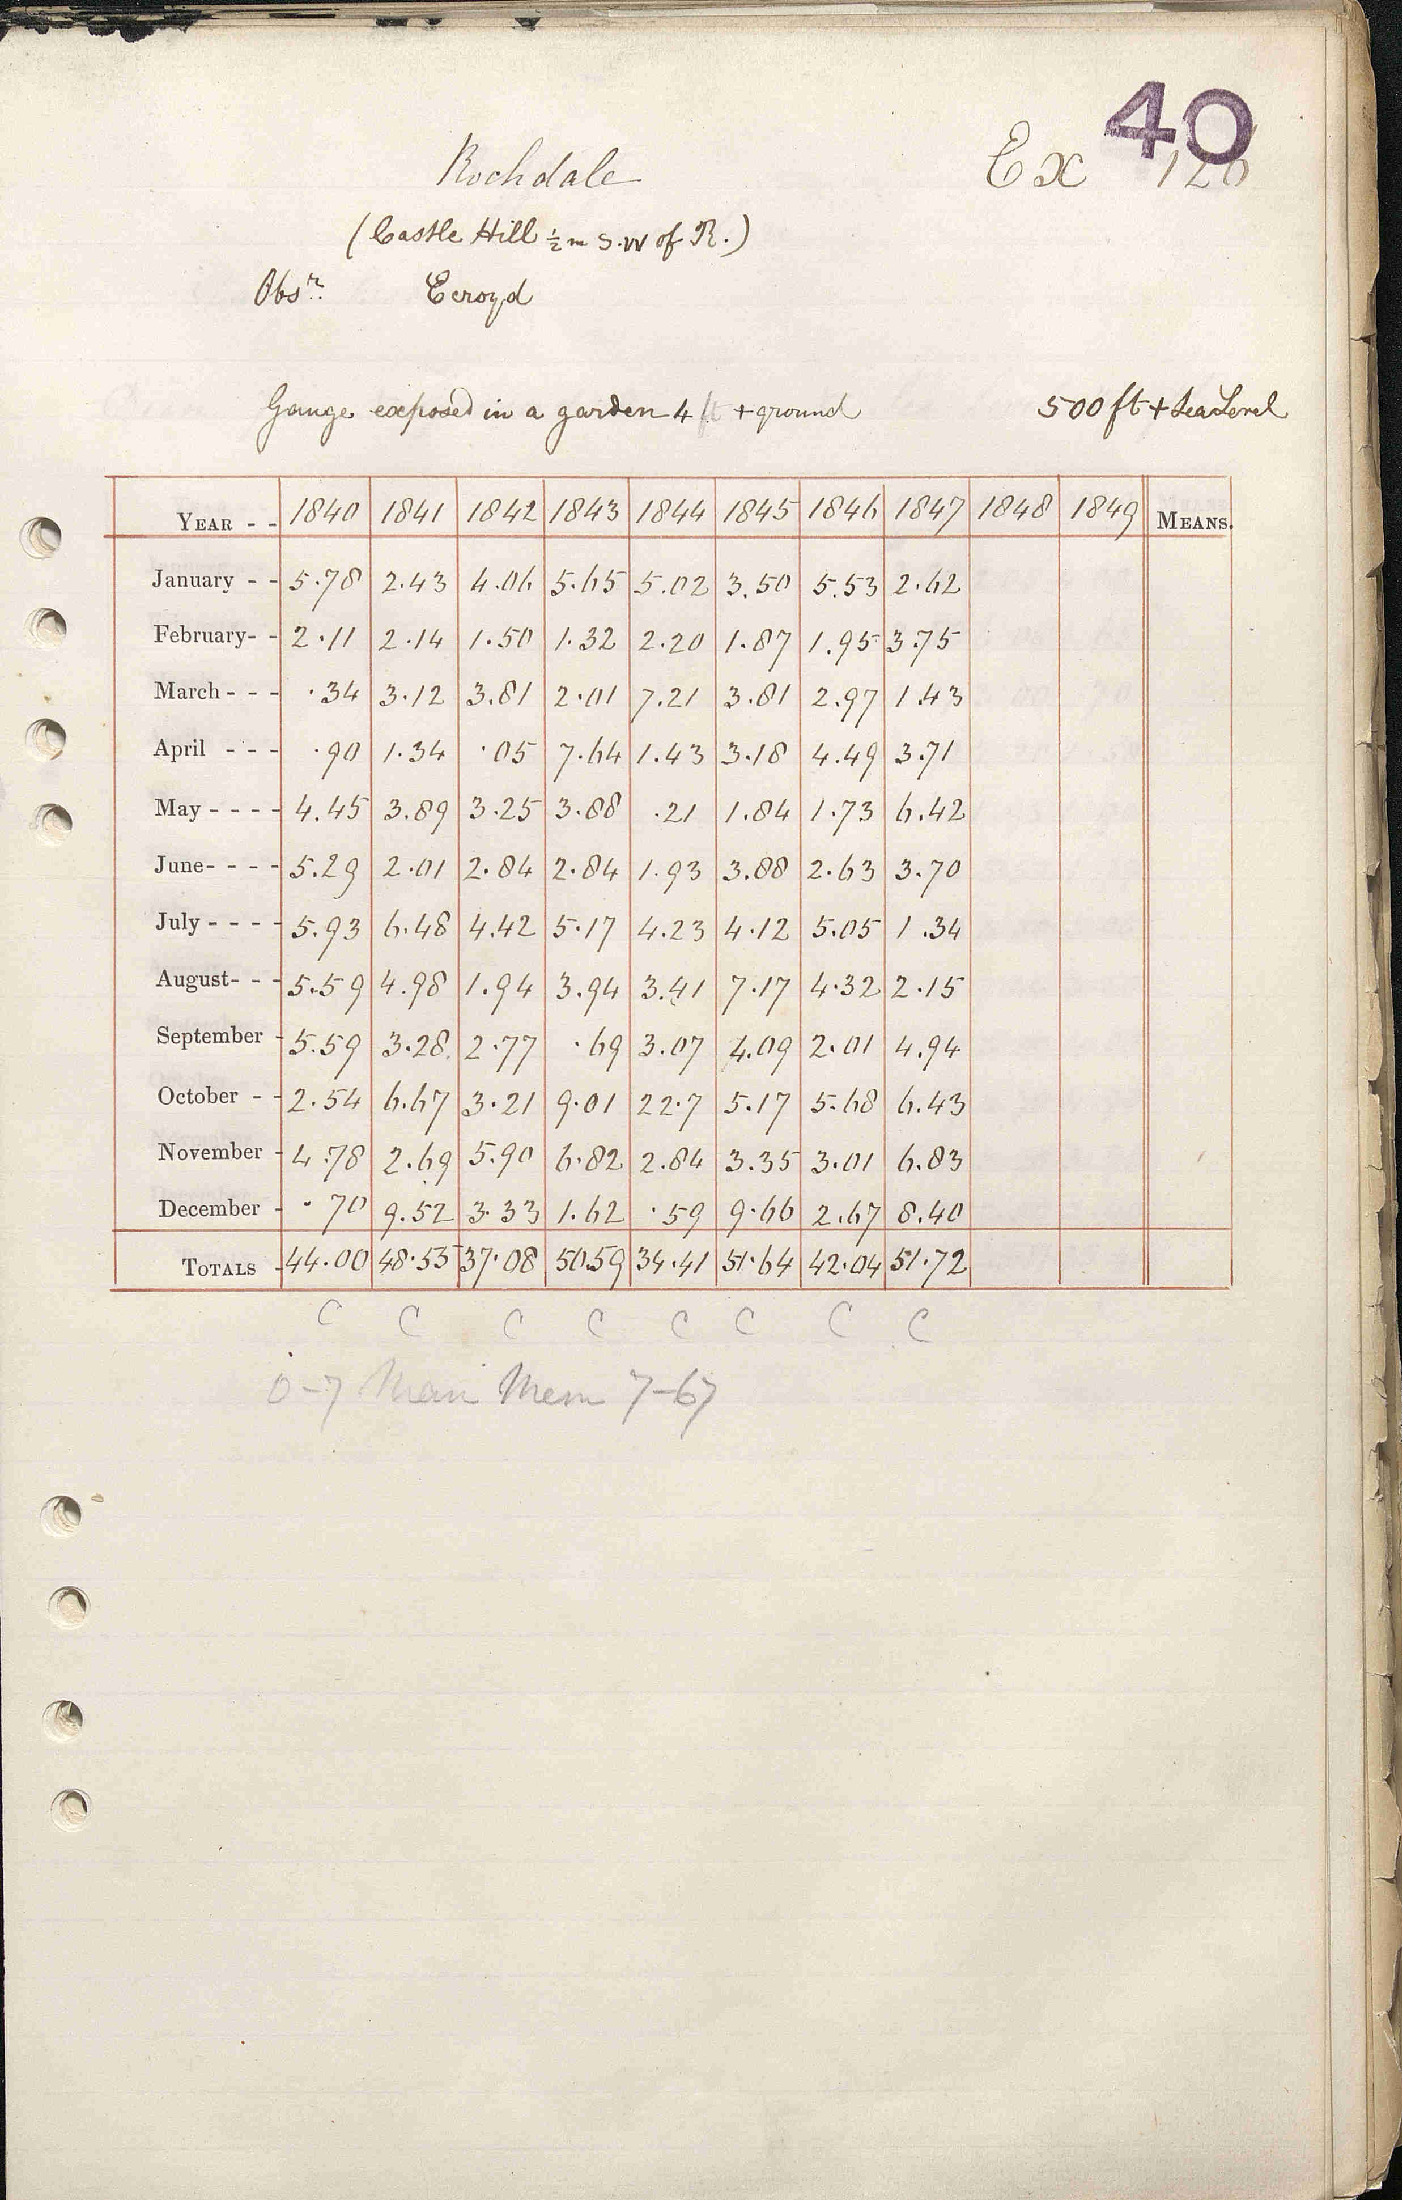 40
Rochdale Ex 120
(Castle Hill ½ m S.W of R.)
Obsr. Ecroyd
Gauge exposed in a garden 4 ft + ground 500 ft + Sea Level
YEAR - - 1840 1841 1842 1843 1844 1845 1846 1847 1848 1849 MEANS.
January - - 5.78 2.43 4.06 5.65 5.02 3.50 5.53 2.62
February - - 2.11 2.14 1.50 1.32 2.20 1.87 1.95 3.75
March - - - .34 3.12 3.81 2.01 7.21 3.81 2.97 1.43
April - - - .90 1.34 .05 7.64 1.43 3.18 4.49 3.71
May - - - - 4.45 3.89 3.25 3.88 .21 1.84 1.73 6.42
June - - - - 5.29 2.01 2.84 2.84 1.93 3.88 2.63 3.70
July - - - - 5.93 6.48 4.42 5.17 4.23 4.12 5.05 1.34
August - - - 5.59 4.98 1.94 3.94 3.41 7.17 4.32 2.15
September - 5.59 3.28 2.77 .69 3.07 4.09 2.01 4.94
October - - 2.54 6.67 3.21 9.01 22.7 5.17 5.68 6.43
November - 4.78 2.69 5.90 6.82 2.84 3.35 3.01 6.83
December - .70 9.52 3.33 1.62 .59 9.66 2.67 8.40
TOTALS - 44.00 48.55 37.08 50.59 34.41 51.64 42.04 51.72
C C C C C C C C
0-7 Man Mem 7-67